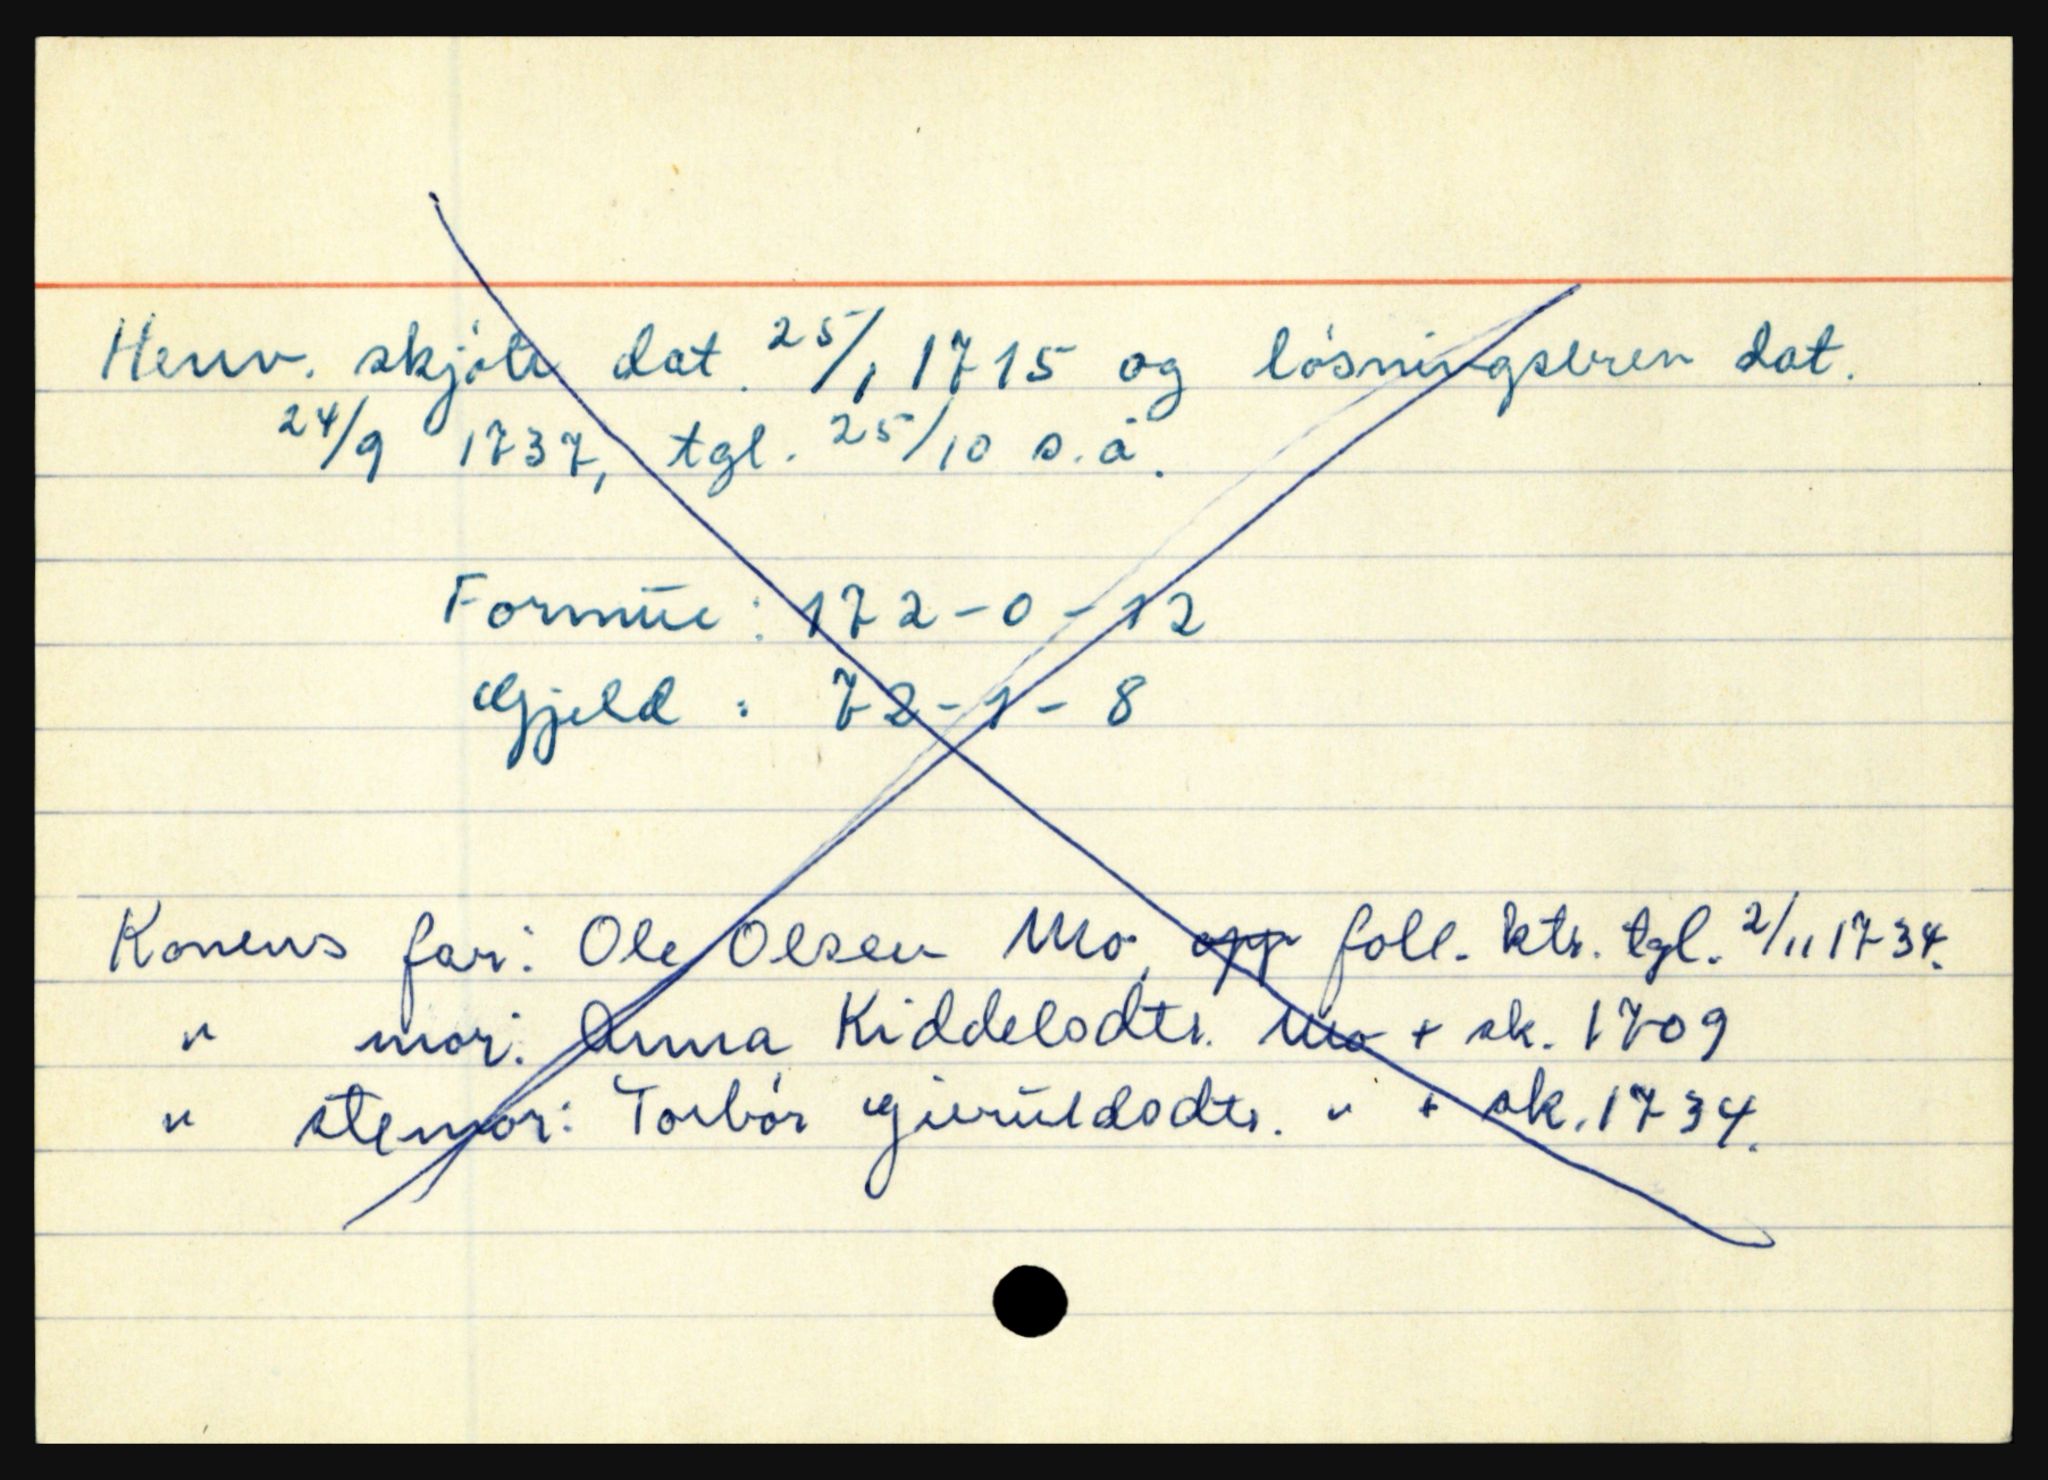 Henv. skjöte dat. 25/1 1715 og lösningsbrev dat.
24/9 1737, tgl. 25/10 s.å.
Formue: 172-0-12
Gjeld: 72-1-8
Konens far: Ole Olsen Mo, opp foll. ktr. tgl. 2/11 1734.
" mor: Anna Kiddelsdtr. Mo + sk. 1709
" stemor: Torbör Gieruldsdtr. " + sk. 1734.